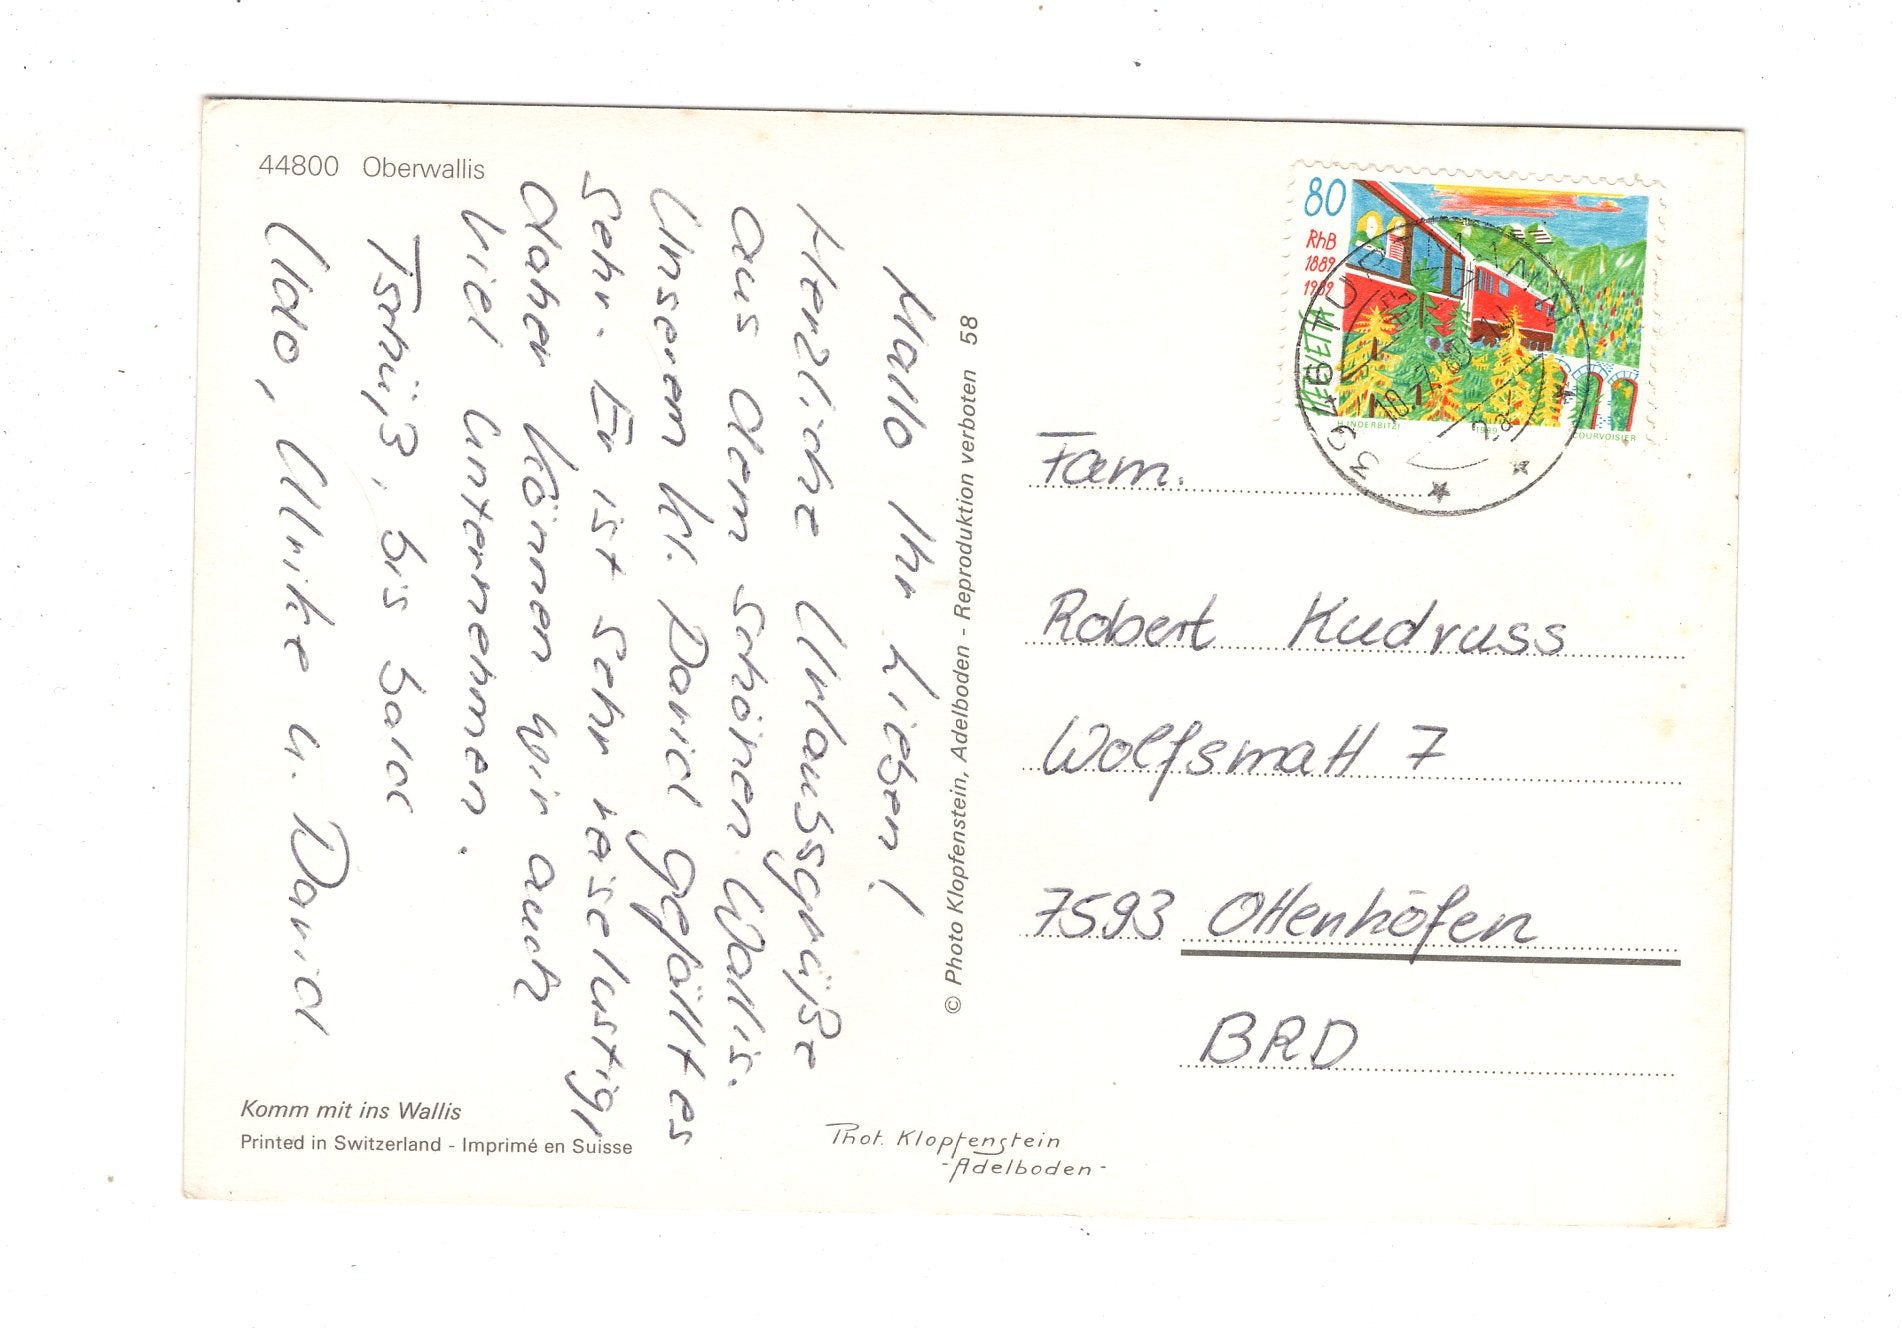 44800 Oberwallis
Hallo Ihr Lieben!
Herzliche Urlaubsgrüße
aus dem schönen Wallis.
Unseren kl. David gefällt es
sehr. Er ist sehr reiselustig,
daher können wir auch
viel unternehmen.
Tschüß, bis bald
Udo, Ulrike u. David
Komm mit ins Wallis
Printed in Switzerland - Imprimé en Suisse
© Photo Klopfenstein, Adelboden - Reproduktion verboten 58
Phot. Klopfenstein
- Adelboden -
80
RhB
1889
1989
HELVETIA
H. INDERBITZI
1989
COURVOISIER
Fam.
Robert Kudruss
Wolfsmatt 7
7593 Ottenhöfen
BRD